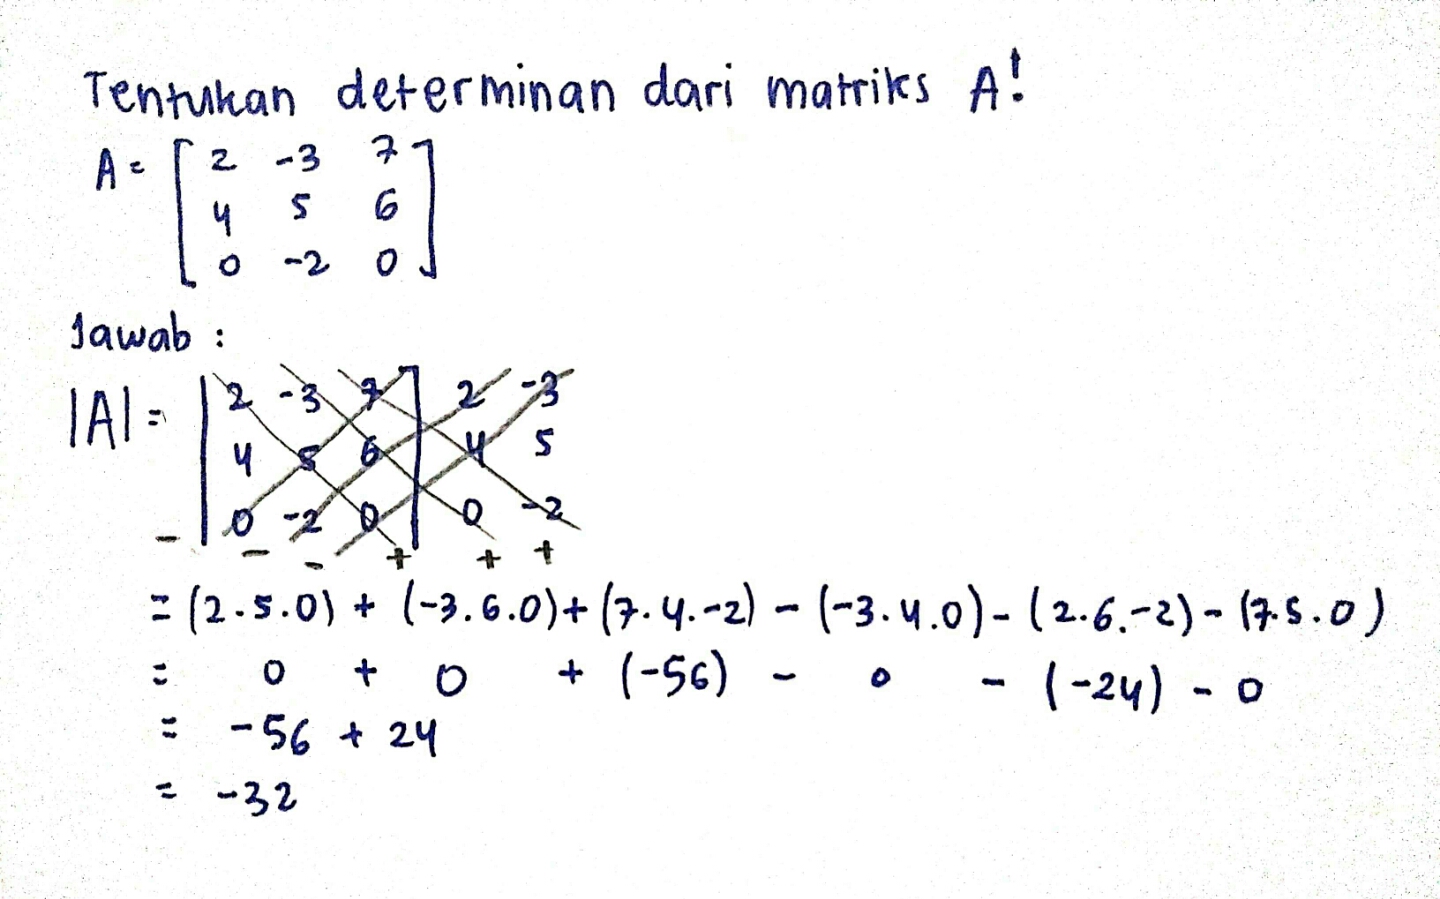 Tentukan determinan dari matriks A!
A = [ 2 -3 7
4 5 6
0 -2 0 ]
Jawab :
|A| = | 2 -3 7 | 2 -3
4 5 6 4 5
0 -2 0 0 -2
- - - + + +
= (2.5.0) + (-3.6.0) + (7.4.-2) - (-3.4.0) - (2.6.-2) - (7.5.0)
= 0 + 0 + (-56) - 0 - (-24) - 0
= -56 + 24
= -32